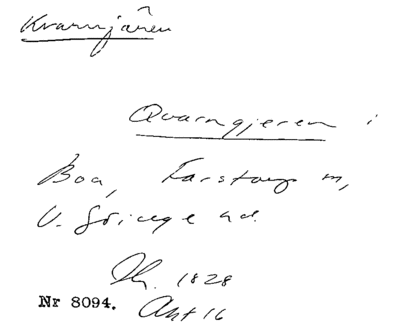 Kvarnjären
Qvarngjeren i
Boa, Farstorp sn,
V. Göinge hd.
1828
Nr 8094. Akt 16